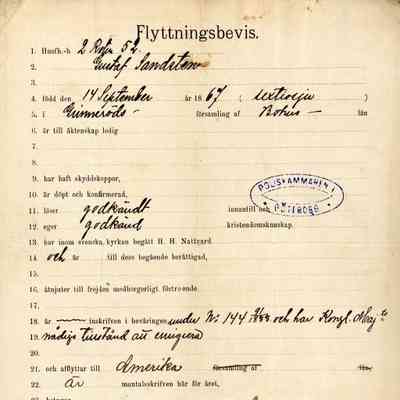 Flyttningsbevis.
1. Husfh.-b 2 Roln 52.
2. Gustaf Sandsten
3.
4. född den 14 September år 1867 ( sextiosju )
5. i Gunneröds församling af Bohus län
6. är till äktenskap ledig
7.
8.
9. har haft skyddskoppor,
10. är döpt och konfirmerad,
11. läser godkändt innantill och
12. eger godkänd kristendomskunskap.
POLISKAMMAREN I GÖTEBORG
13. har inom svenska kyrkan begått H. H. Nattvard
14. och är till dess begående berättigad,
15.
16. åtnjuter till frejden medborgerligt förtroende.
17.
18. är inskrifven i beväringen under No 144 och har Kongl. Maj:ts
19. nådiga tillstånd att emigrera
20.
21. och afflyttar till Amerika församling af län.
22. Är mantalsskrifven här för året,
23.